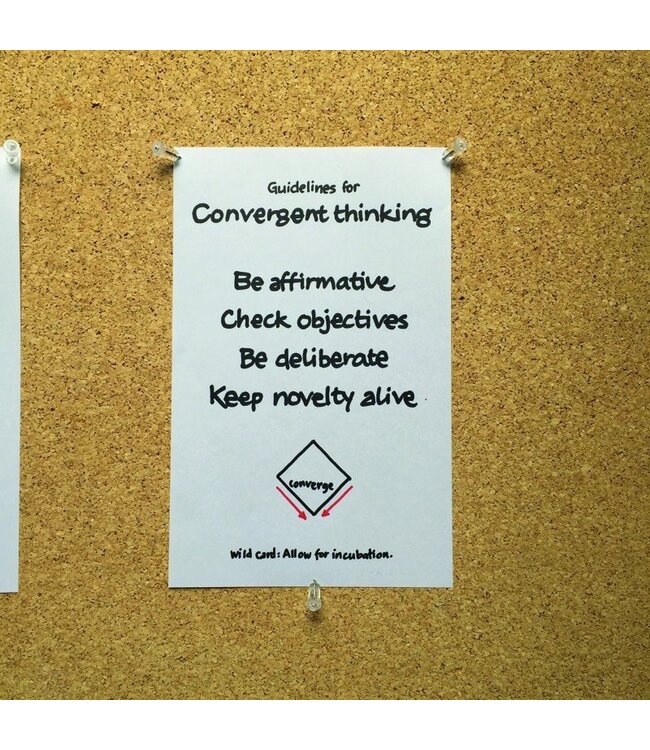 Guidelines for
Convergent thinking
Be affirmative
Check objectives
Be deliberate
Keep novelty alive
converge
Wild card: Allow for incubation.